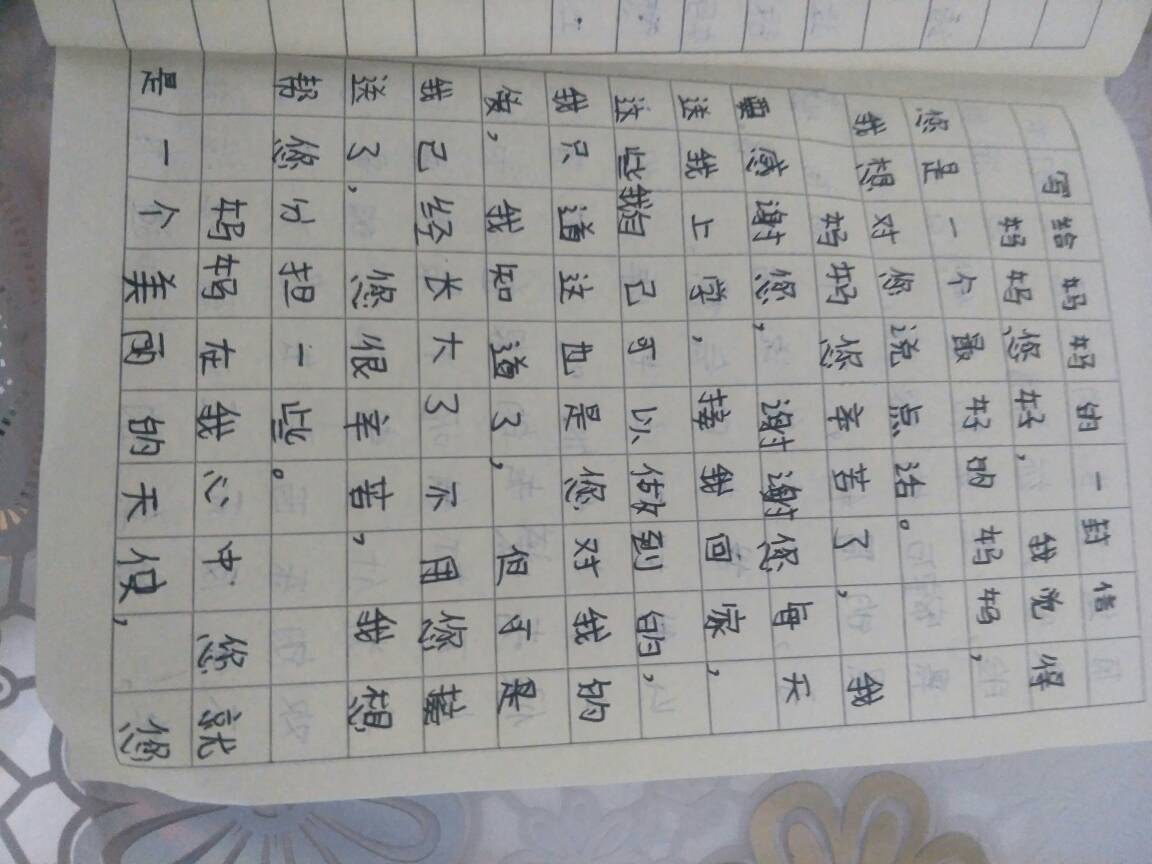 写给妈妈的一封信
妈妈,您好,我觉得
您是一个最好的妈妈,
我想对您说点话。
妈妈您辛苦了,我
要感谢您,谢谢您每天
送我上学,接我回家,
这些我自己可以做到的,
我只道这也是您对我的
爱,我知道了,但于是
我已经长大了不用您接
送了,您很辛苦,我想
帮您分担一些。
妈妈在我心中您就
是一个美丽的天使,您